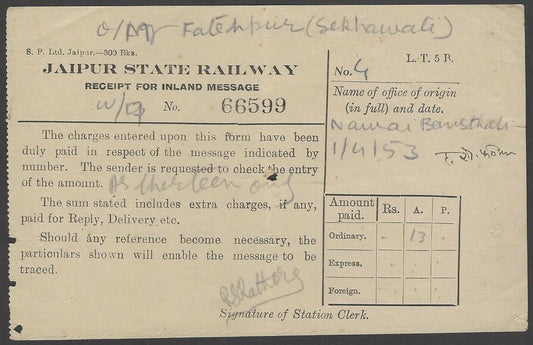 Fatehpur (Sekhawati)
S. P. Ltd. Jaipur.—300 Bks.
JAIPUR STATE RAILWAY
RECEIPT FOR INLAND MESSAGE
No. 66599
The charges entered upon this form have been
duly paid in respect of the message indicated by
number. The sender is requested to check the entry
of the amount. As thirteen only
The sum stated includes extra charges, if any,
paid for Reply, Delivery etc.
Should any reference become necessary, the
particulars shown will enable the message to be
traced.
Signature of Station Clerk.
L. T. 5 R.
No. 4
Name of office of origin
(in full) and date.
Newai Bansthali
1/4/53
Amount paid. Rs. A. P.
Ordinary. - 13 -
Express.
Foreign.